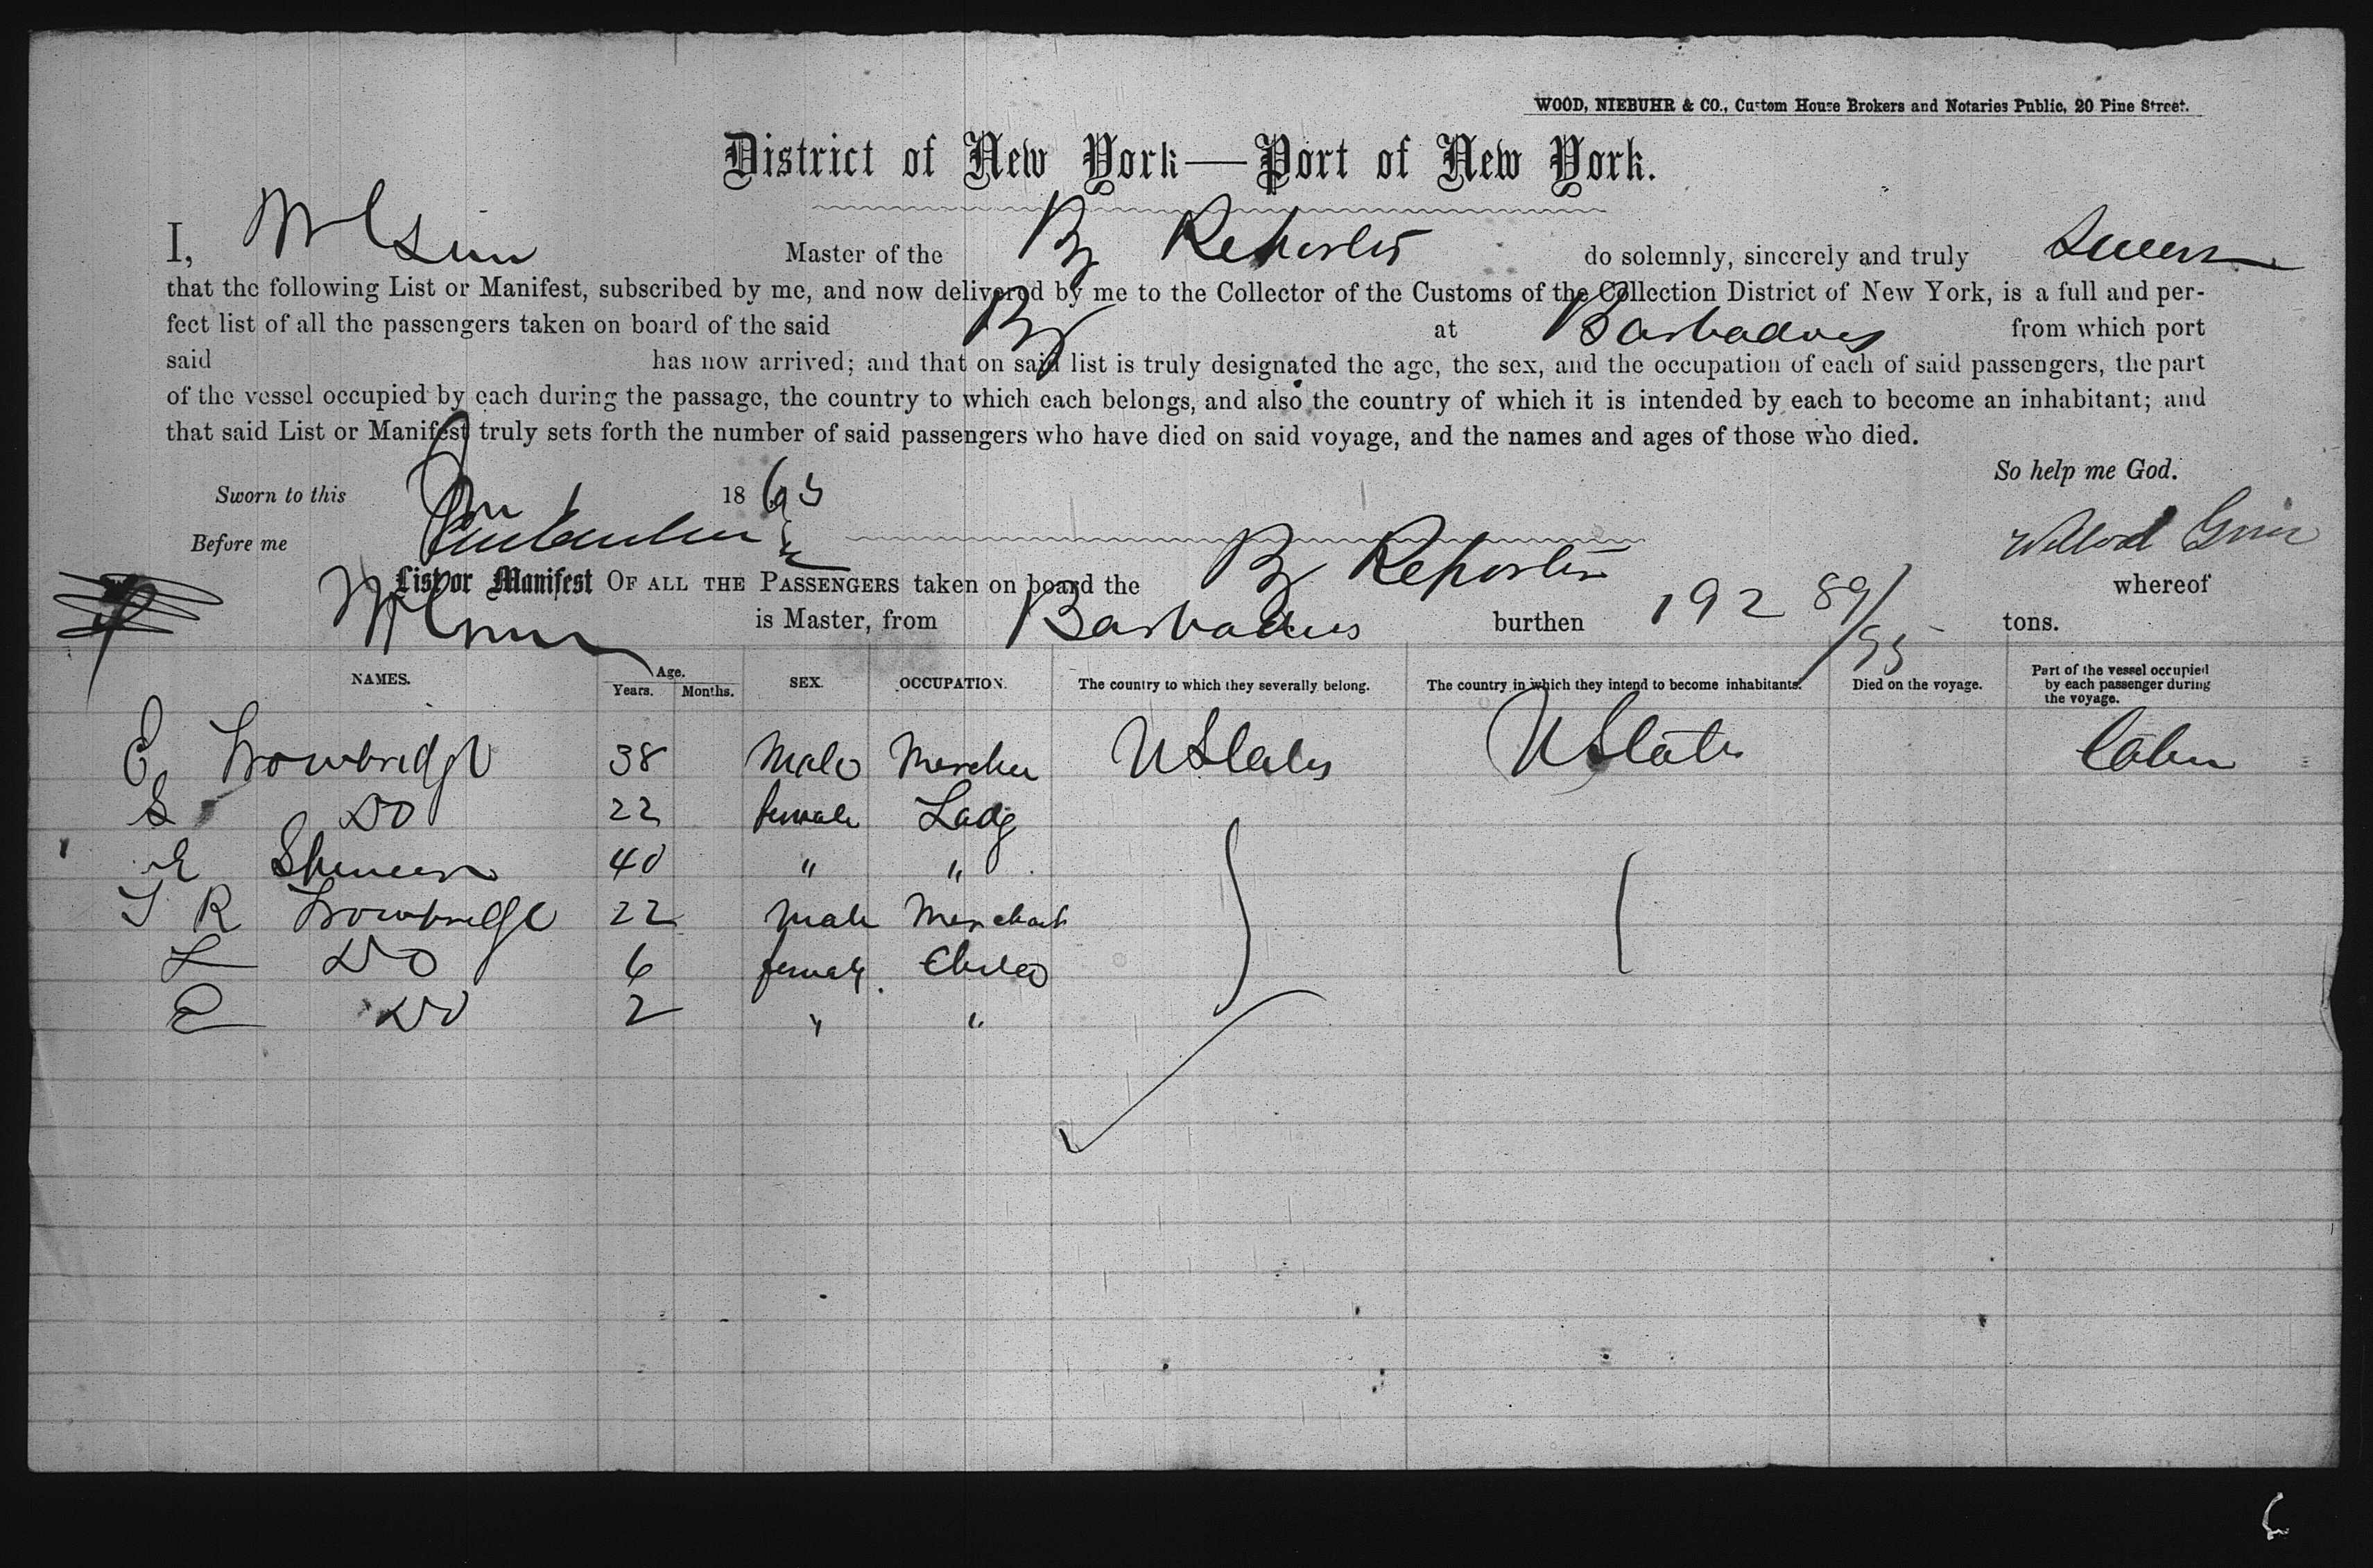 WOOD, NIEBUHR & CO., Custom House Brokers and Notaries Public, 20 Pine Street.
District of New York—Port of New York.
I, Master of the Br Reporter do solemnly, sincerely and truly Swear
that the following List or Manifest, subscribed by me, and now delivered by me to the Collector of the Customs of the Collection District of New York, is a full and per-
fect list of all the passengers taken on board of the said Br at Barbadoes from which port
said has now arrived; and that on said list is truly designated the age, the sex, and the occupation of each of said passengers, the part
of the vessel occupied by each during the passage, the country to which each belongs, and also the country of which it is intended by each to become an inhabitant; and
that said List or Manifest truly sets forth the number of said passengers who have died on said voyage, and the names and ages of those who died.
So help me God.
Sworn to this 1863
Before me
List or Manifest OF ALL THE PASSENGERS taken on board the Br Reporter whereof
is Master, from Barbadoes burthen 192 89/95 tons.
NAMES. Age. Years. Months. SEX. OCCUPATION. The country to which they severally belong. The country in which they intend to become inhabitants. Died on the voyage. Part of the vessel occupied by each passenger during the voyage.
E Trowbridge 38 Male Merchn U States U States Cabin
S Do 22 female Lady
E 40 " "
T R Trowbridge 22 Male Merchant
L Do 6 female Child
E Do 2 " "